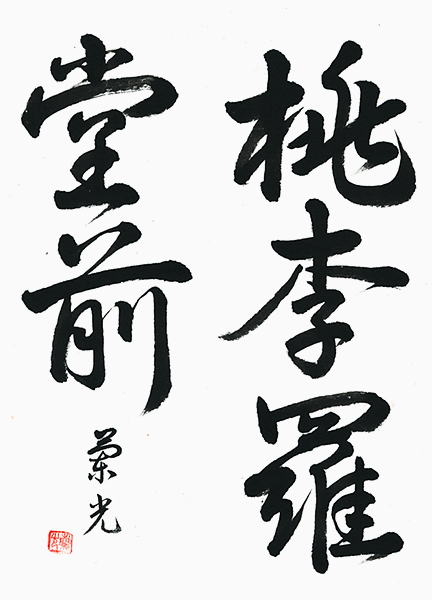 桃李羅
堂前
蘭光